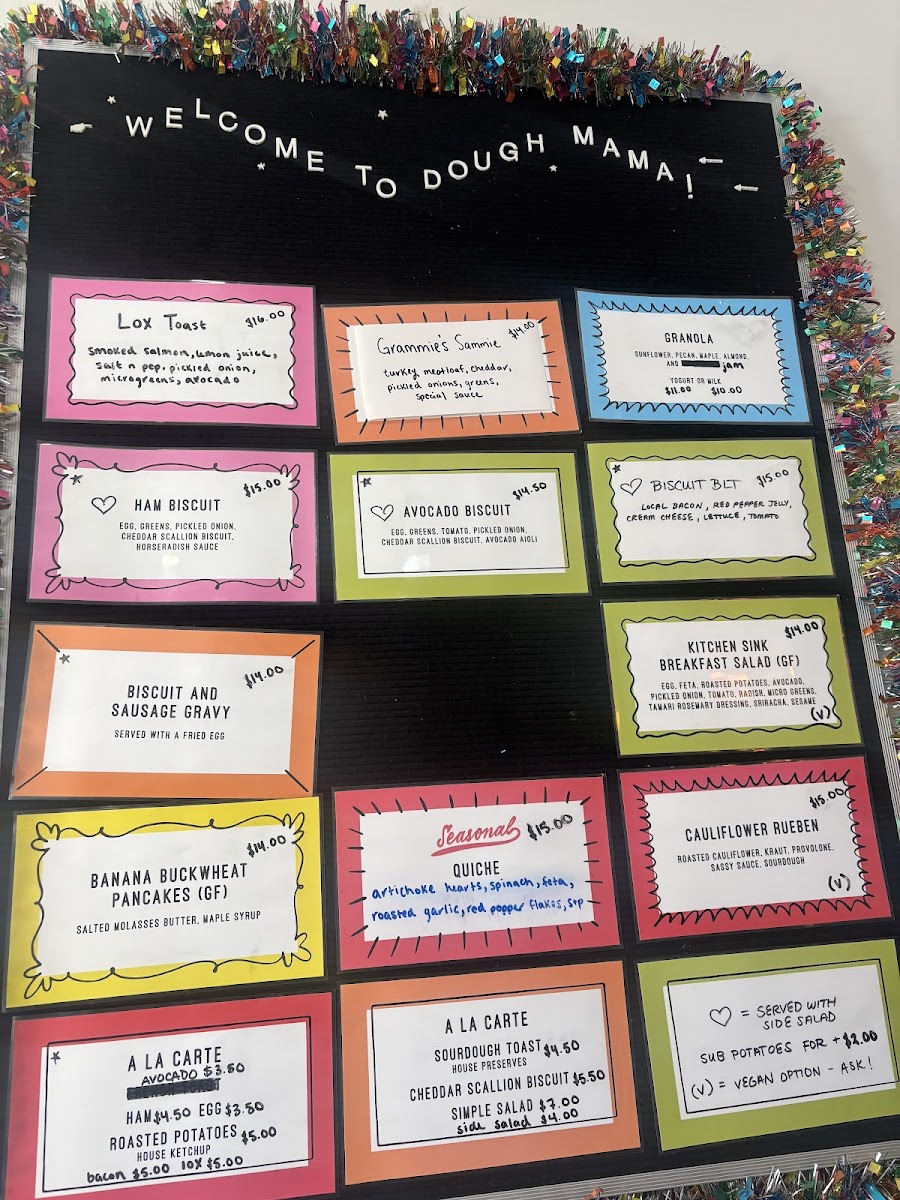 WELCOME TO DOUGH MAMA!
Lox Toast $16.00
smoked salmon, lemon juice,
salt n pep, pickled onion,
microgreens, avocado
Grammie's Sammie $14.00
turkey meatloaf, cheddar,
pickled onions, greens,
special sauce
GRANOLA
SUNFLOWER, PECAN, MAPLE, ALMOND,
AND jam
YOGURT OR MILK
$11.00 $10.00
HAM BISCUIT $15.00
EGG, GREENS, PICKLED ONION,
CHEDDAR SCALLION BISCUIT,
HORSERADISH SAUCE
AVOCADO BISCUIT $14.50
EGG, GREENS, TOMATO, PICKLED ONION,
CHEDDAR SCALLION BISCUIT, AVOCADO AIOLI
BISCUIT BLT $15.00
LOCAL BACON, RED PEPPER JELLY,
CREAM CHEESE, LETTUCE, TOMATO
$14.00
BISCUIT AND
SAUSAGE GRAVY
SERVED WITH A FRIED EGG
$14.00
KITCHEN SINK
BREAKFAST SALAD (GF)
EGG, FETA, ROASTED POTATOES, AVOCADO,
PICKLED ONION, TOMATO, RADISH, MICRO GREENS,
TAMARI ROSEMARY DRESSING, SRIRACHA, SESAME
(V)
$14.00
BANANA BUCKWHEAT
PANCAKES (GF)
SALTED MOLASSES BUTTER, MAPLE SYRUP
Seasonal $15.00
QUICHE
artichoke hearts, spinach, feta,
roasted garlic, red pepper flakes, s+p
$15.00
CAULIFLOWER RUEBEN
ROASTED CAULIFLOWER, KRAUT, PROVOLONE,
SASSY SAUCE, SOURDOUGH
(V)
A LA CARTE
AVOCADO $3.50
HAM $4.50 EGG $3.50
ROASTED POTATOES $5.00
HOUSE KETCHUP
bacon $5.00 lox $5.00
A LA CARTE
SOURDOUGH TOAST $4.50
HOUSE PRESERVES
CHEDDAR SCALLION BISCUIT $5.50
SIMPLE SALAD $7.00
side salad $4.00
= SERVED WITH
SIDE SALAD
SUB POTATOES FOR +$2.00
(V) = VEGAN OPTION - ASK!